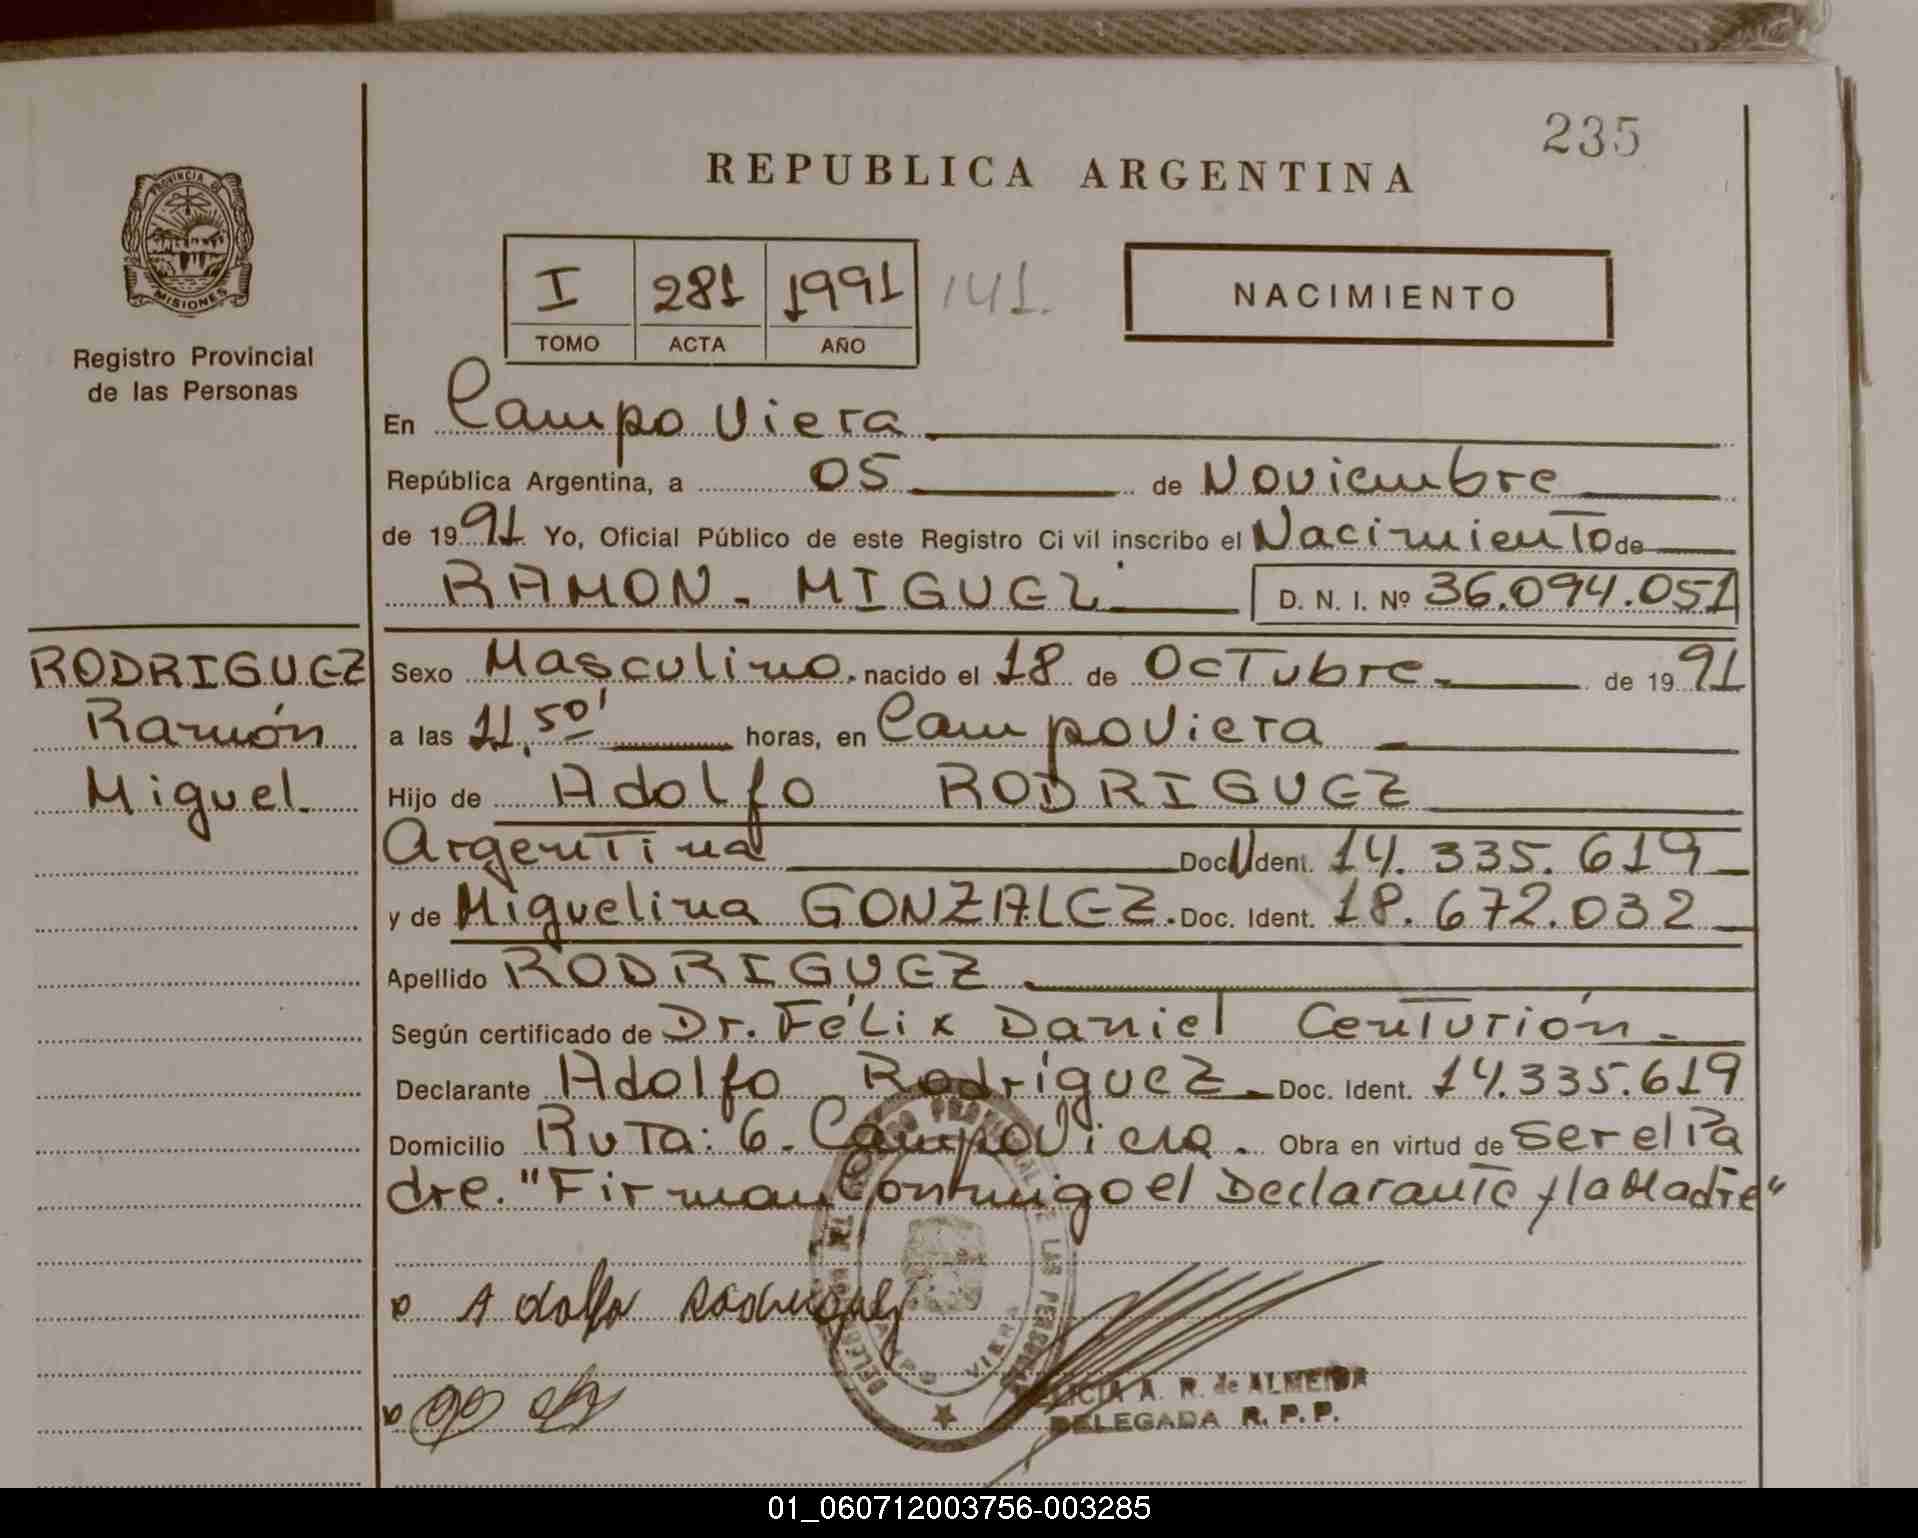 235
REPUBLICA ARGENTINA
PROVINCIA DE
MISIONES
Registro Provincial
de las Personas
I 281 1991 141.
TOMO ACTA AÑO
NACIMIENTO
En Campo Viera
República Argentina, a 05 de Noviembre
de 1991 Yo, Oficial Público de este Registro Civil inscribo el Nacimiento de
RAMON - MIGUEL D. N. I. Nº 36.094.051
RODRIGUEZ
Ramón
Miguel.
Sexo Masculino. nacido el 18 de Octubre. de 1991
a las 11,50' horas, en Campo Viera
Hijo de Adolfo RODRIGUEZ
Argentina Doc. Ident. 14.335.619
y de Miguelina GONZALEZ. Doc. Ident. 18.672.032
Apellido RODRIGUEZ.
Según certificado de Dr. Félix Daniel Centurión.
Declarante Adolfo Rodríguez. Doc. Ident. 14.335.619
Domicilio Ruta: 6. Campo Viera. Obra en virtud de ser el Pa
dre. "Firman Conmigo el Declarante y la Madre"
Adolfo Rodriguez
CAMPO VIERA
A. R. de ALMEIDA
DELEGADA R. P. P.
01_060712003756-003285